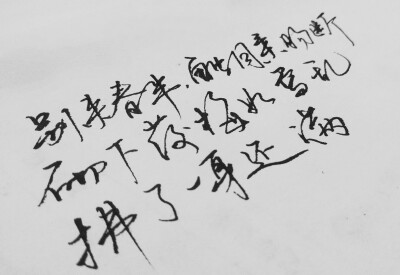 别来春半.触目柔肠断
砌下落梅如雪乱
拂了一身还满